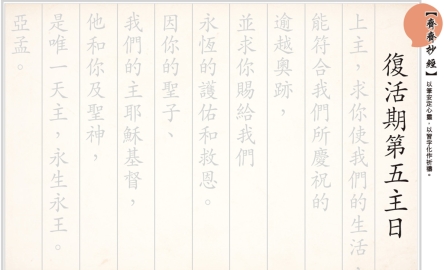 【齊齊抄經】
以筆安定心靈，以習字化作祈禱。
復活期第五主日
上主，求你使我們的生活，
能符合我們所慶祝的
逾越奧跡，
並求你賜給我們
永恆的護佑和救恩。
因你的聖子、
我們的主耶穌基督，
他和你及聖神，
是唯一天主，永生永王。
亞孟。